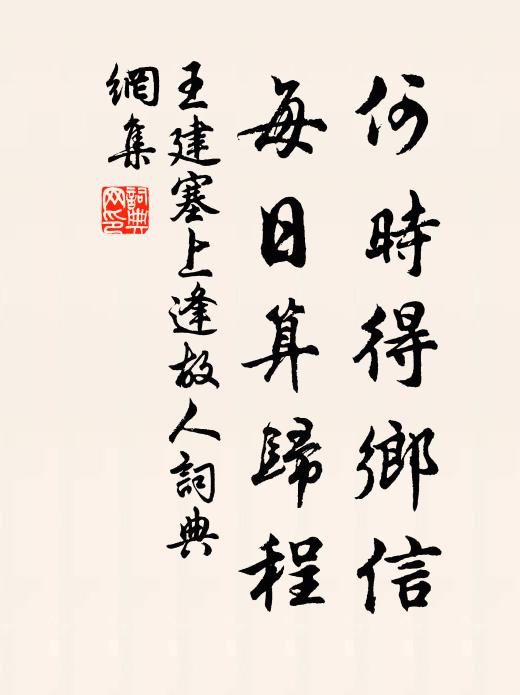 何時得鄉信
每日算歸程
王建塞上逢故人詞典
網集
詞典網印